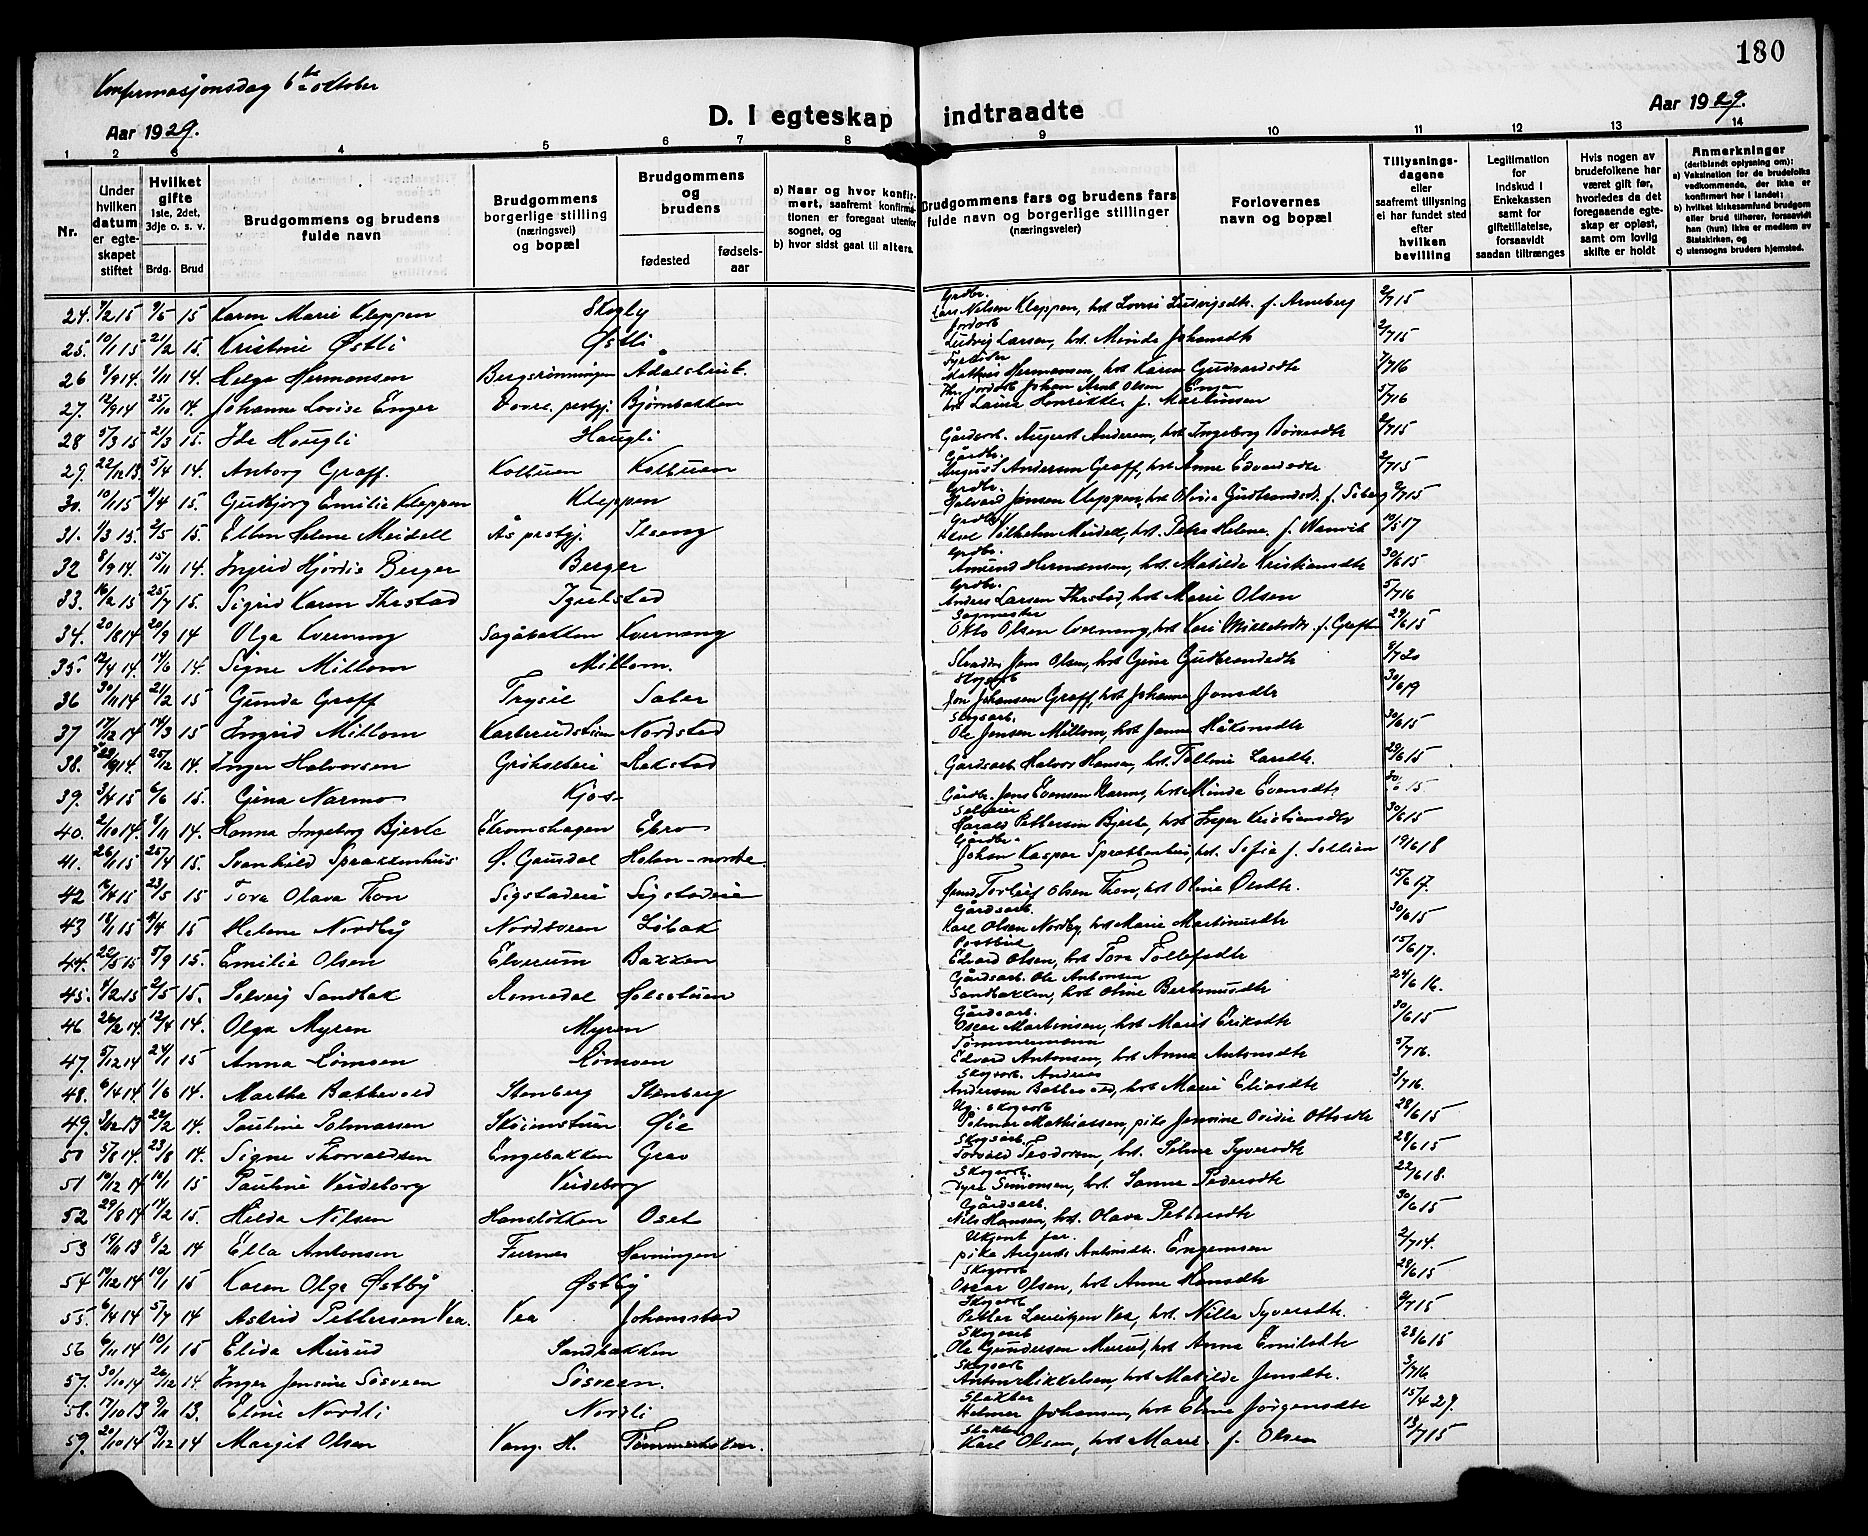 180
Konfirmasjonsdag 6te oktober
D. I egteskap indtraadte
Aar 1929.
Aar 1929.
1 2 3 4 5 6 7 8 9 10 11 12 13 14
Nr.
Under hvilken datum er egteskapet stiftet
Hvilket gifte 1ste, 2det, 3dje o. s. v.
Brdg. Brud
Brudgommens og brudens fulde navn
Brudgommens borgerlige stilling (næringsvei) og bopæl
Brudgommens og brudens
fødested
fødselsaar
a) Naar og hvor konfirmert, saafremt konfirmationen er foregaat utenfor sognet, og
b) hvor sidst gaat til alters.
Brudgommens fars og brudens fars fulde navn og borgerlige stillinger (næringsveier)
Forlovernes navn og bopæl
Tillysningsdagene eller saafremt tillysning ei har fundet sted efter hvilken bevilling
Legitimation for indskud i Enkekassen samt for giftetillatelse, forsaavidt saadan tiltrænges
Hvis nogen av brudefolkene har været gift før, hvorledes da det foregaaende egteskap er opløst, samt om lovlig skifte er holdt
Anmerkninger (deriblandt oplysning om):
a) Vaksination for de brudefolks vedkommende, der ikke er konfirmert her i landet;
b) hvilket kirkesamfund brudgom eller brud tilhører, forsaavidt han (hun) ikke er medlem av Statskirken, og
c) utensogns bruders hjemsted.
24. 7/2 15 9/5 15 Karen Marie Kleppen Skogly Grdbr. Lars Nelsen Kleppen, hst. Lovise Ludvigsdtr. f. Arneberg 2/7 15
25. 10/1 15 21/2 15. Kristine Østli Østli Jordarb. Ludvig Larsen, hst. Minda Johansdtr 2/7 15
26 8/9 14. 1/11 14. Helga Hermansen Bergsrønningen Ådalsbruk. Fyrbøter Mathias Hermansen, hst Karen Gudvardsdtr 7/7 16
27. 12/9 14 25/10 14. Johanne Lovise Enger Dovre prestgj. Bjørnbakken jordarb Johan Arnt Olsen Enger hst Laura Henrikke f. Martinsen 5/7 16
28 5/3 15 21/3 15. Ida Haugli Haugli Gårdsarb. August Andersen, hst Ingeborg 2/7 15
29. 22/12 13. 5/4 14. Anborg Graff. Koltuen Koltuen Gårdbr. August Andersen Graff, hst. Anne Edvardsdtr 2/7 15
30. 10/1 15 4/4 15. Gudbjørg Emilie Kleppen Kleppen Grdbr. Halvard Jensen Kleppen, hst Olivia Gudbrandsd. f. Seberg 2/7 15
31. 1/3 15. 2/5 15. Ellen Helene Meidell Ås prestgj. Ilseng Grdbr Vilhelm Meidell, hst. Petra Helene f. Wanvik 10/5 17
32 8/9 14. 15/11 14. Ingrid Hjørdis Berger Berger Grdbr. Amund Hermansen, hst. Matilde Kristiansdtr 30/6 15
33. 16/2 15 25/7 15. Sigrid Karen Thrstad Igulstad Grdbr. Anders Larsen Thrstad, hst Marie Olsen 5/7 16
34. 20/8 14 20/9 14 Olga Kvernæng Sagåbakken Kvernæng Sagmester Otto Olsen Kvernæng, hst Kari Mikkelsdtr. f. Graften 29/6 15
35. 12/4 14. 14/6 14. Signe Millom Millom. Skredder Jens Olsen, hst Gine Gudbrandsdtr 9/7 20
36 30/11 14 21/2 15 Gunda Graff Trysil Sæter Skogsarb Jon Johansen Graff, hst Johanne Jonsdtr 30/6 19
37 17/12 14 14/3 15 Ingrid Millom Karterudstuen Nordstad Skogsarb. Ole Jensen Millom, hst Janna Håkonsdtr 30/6 15
38. 29/9 14 25/12 14. Inger Halvorsen Grøholteie Rekstad Gårdsarb Halvor Hansen, hst. Tolline Larsdtr. 29/6 15
39. 3/4 15 6/6 15. Gina Narmo Kjos Gårdbr. Jens Evensen Narmo, hst Minda Evensdtr 30/6 15
40. 2/10 14. 8/11 14. Hanna Ingeborg Bjerke Strømshagen Ebro Harald Pettersen Bjerke, hst Inger Kristiansdtr 30/6 15
41. 26/1 15 25/4 15. Svanhild Sprækkenhus Ø. Gausdal Holen-nordre. Gårdbr. Johan Kaspar Sprækkenhus, hst. Sofie f. Sollien 19/6 18
42 16/4 15 23/5 15 Tora Olava Thon Sigstadeie Sigstadeie Torleif Olsen Thon, hst Oline Olsdtr. 15/6 17.
43 18/1 15 4/4 15 Helene Nordby Nordsveen Løbak Gårdsarb. Karl Olsen Nordby, hst Marie Martinusdtr 30/6 15
44. 22/5 15 5/9 15. Emilie Olsen Elverum Bakken Postbud Edvard Olsen, hst Tora Tollefsdtr 15/6 17.
45. 4/2 15 2/5 15. Solveig Sandbak Romedal Holestuen Gårdsarb. Ole Antonsen Sandbakken, hst Oline Berntinusdtr 24/6 16.
46 26/2 14. 12/4 14. Olga Myren Myren Gårdsarb. Oscar Martinsen, hst Marie Eriksdtr 30/6 15
47. 5/12 14 24/1 15 Anna Lømoen Lømoen Tømmermann Edvard Antonsen, hst Anna Antonsdtr 5/7 16.
48. 6/4 14 1/6 14. Martha Bakkevold Stenberg Stenberg Skogsarb. Andreas Andersen Bakkevold, hst. Marie Eliasdtr 3/7 16.
49. 3/12 13 22/2 14. Pauline Palmassen Skøienstuen Øie Ug. skogsarb Palmar Mathiassen, pike Jensine Ovidie Ottosdtr 28/6 15
50 5/8 14. 23/8 14. Signe Thorvaldsen Engebakken Grav Skogsarb. Torvald Teodorsen, hst. Selma Syversdtr 28/6 15
51 10/12 14 10/1 15 Pauline Veideborg Veideborg Skogsarb. Syver Simonsen, hst. Sanna Pedersdtr 22/6 18.
52 29/8 14 14/2 15. Hilda Nilsen Hansløkken Oset Gårdsarb. Nils Hansen, hst. Olava Pettersdtr 30/6 15
53 19/11 13 8/2 14 Ella Antonsen Furnes Havningen Ukjent far. pike Augusta Antonsdtr. Engemoen 2/7 14.
54 10/12 14 10/1 15 Karen Olga Østby Østby Skogsarb Oscar Olsen, hst Anne Hansdtr 28/6 15
55. 6/4 14 5/7 14 Astrid Pettersen Vea. Vea Johanstad Skogsarb Petter Lauritzen Vea, hst. Nilla Syversdtr. 2/7 15
56 6/11 14 10/1 15 Elida Murud Sandbakken Skogsarb Ole Gundersen Murud, hst. Anna Emilsdtr 28/6 15
57. 30/10 14 26/12 14. Inger Jensine Søsveen Søsveen. Skogsarb Anton Mikkelsen, hst Matilde Jensdtr. 3/7 16
58. 17/10 13 9/11 13. Eline Nordli Nordli Slakter Helmer Johansen, hst Elena Jørgensdtr 15/4 29.
59. 20/10 14 13/12 14 Margit Olsen Vang. H. Tømmerholen. Slakter Karl Olsen, hst Marie f. Olsen 13/7 15